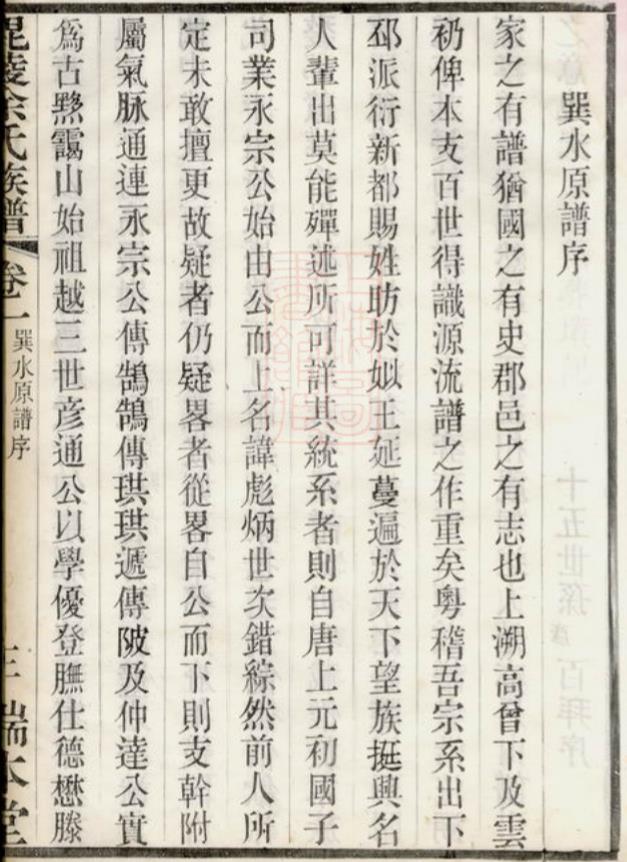 巽水原譜序
家之有譜猶國之有史郡邑之有志也上溯高曾下及雲
礽俾本支百世得識源流譜之作重矣粵稽吾宗系出下
邳派衍新都賜姓昉於姒王延蔓遍於天下望族挺興名
人輩出莫能殫述所可詳其統系者則自唐上元初國子
司業永宗公始由公而上名諱彪炳世次錯綜然前人所
定未敢擅更故疑者仍疑畧者從畧自公而下則支幹附
屬氣脉通連永宗公傳鵠鵠傳珙珙遞傳陂及仲達公實
爲古黟靄山始祖越三世彥通公以學優登膴仕德懋滕
毘陵余氏族譜 卷一 巽水原譜序 三 瑞本堂